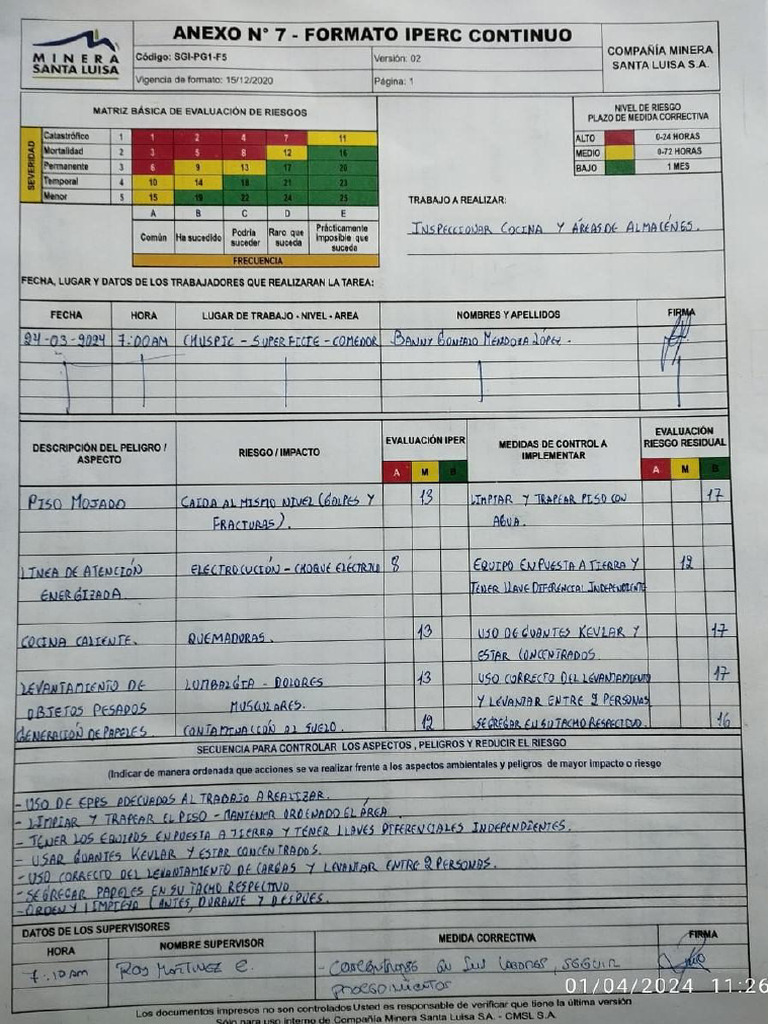 MINERA
SANTA LUISA
ANEXO N° 7 - FORMATO IPERC CONTINUO
Código: SGI-PG1-F5
Versión: 02
Vigencia de formato: 15/12/2020
Página: 1
COMPAÑÍA MINERA
SANTA LUISA S.A.
MATRIZ BÁSICA DE EVALUACIÓN DE RIESGOS
SEVERIDAD
Catastrófico 1 1 2 4 7 11
Mortalidad 2 3 5 8 12 16
Permanente 3 6 9 13 17 20
Temporal 4 10 14 18 21 23
Menor 5 15 19 22 24 25
A B C D E
Común Ha sucedido Podría suceder Raro que suceda Prácticamente imposible que suceda
FRECUENCIA
NIVEL DE RIESGO
PLAZO DE MEDIDA CORRECTIVA
ALTO 0-24 HORAS
MEDIO 0-72 HORAS
BAJO 1 MES
TRABAJO A REALIZAR:
INSPECCIONAR COCINA Y ÁREAS DE ALMACÉNES.
FECHA, LUGAR Y DATOS DE LOS TRABAJADORES QUE REALIZARAN LA TAREA:
FECHA HORA LUGAR DE TRABAJO - NIVEL - AREA NOMBRES Y APELLIDOS FIRMA
24-03-2024 7:00AM CHUSPIC - SUPERFICIE - COMEDOR BANNY GONZALO MENDOZA LÓPEZ.
DESCRIPCIÓN DEL PELIGRO / ASPECTO
RIESGO / IMPACTO
EVALUACIÓN IPER
A M B
MEDIDAS DE CONTROL A IMPLEMENTAR
EVALUACIÓN RIESGO RESIDUAL
A M B
PISO MOJADO CAIDA AL MISMO NIVEL (GOLPES Y 13 LIMPIAR Y TRAPEAR PISO CON 17
FRACTURAS). AGUA.
LINEA DE ATENCIÓN ELECTROCUCIÓN - CHOQUE ELÉCTRICO 8 EQUIPO EN PUESTA A TIERRA Y 12
ENERGIZADA TENER LLAVE DIFERENCIAL INDEPENDIENTE
COCINA CALIENTE. QUEMADURAS. 13 USO DE GUANTES KEVLAR Y 17
ESTAR CONCENTRADOS.
LEVANTAMIENTO DE LUMBALGIA - DOLORES 13 USO CORRECTO DEL LEVANTAMIENTO 17
OBJETOS PESADOS MUSCULARES. Y LEVANTAR ENTRE 2 PERSONAS
GENERACIÓN DE PAPELES CONTAMINACIÓN AL SUELO. 12 SEGREGAR EN SU TACHO RESPECTIVO. 16
SECUENCIA PARA CONTROLAR LOS ASPECTOS , PELIGROS Y REDUCIR EL RIESGO
(Indicar de manera ordenada que acciones se va realizar frente a los aspectos ambientales y peligros de mayor impacto o riesgo
- USO DE EPPS ADECUADOS AL TRABAJO A REALIZAR.
- LIMPIAR Y TRAPEAR EL PISO - MANTENER ORDENADO EL ÁREA.
- TENER LOS EQUIPOS EN PUESTA A TIERRA Y TENER LLAVES DIFERENCIALES INDEPENDIENTES.
- USAR GUANTES KEVLAR Y ESTAR CONCENTRADOS.
- USO CORRECTO DEL LEVANTAMIENTO DE CARGAS Y LEVANTAR ENTRE 2 PERSONAS.
- SEGREGAR PAPELES EN SU TACHO RESPECTIVO
- ORDEN Y LIMPIEZA (ANTES, DURANTE Y DESPUES.
DATOS DE LOS SUPERVISORES
HORA NOMBRE SUPERVISOR MEDIDA CORRECTIVA FIRMA
7:10 am ROY MARTINEZ E. - CONCENTRADOS en sus labores, SEGUIR
PROCEDIMIENTOS
01/04/2024 11:26
Los documentos impresos no son controlados Usted es responsable de verificar que tiene la última versión
Sólo para uso interno de Compañía Minera Santa Luisa SA. - CMSL S.A.